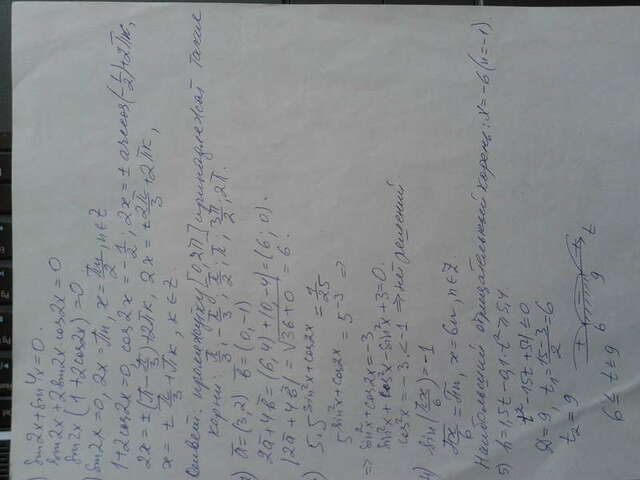 1) sin2x+sin4x=0.
sin2x+2sin2x cos2x=0
sin2x (1+2cos2x)=0
1) sin2x=0, 2x=πn, x=πn/2, n∈Z
1+2cos2x=0, cos2x=-1/2; 2x=±arccos(-1/2)+2πk,
2x=±(π-π/3)+2πk, 2x=±2π/3+2πk,
x=±π/3+πk, k∈Z.
Ответ: промежутку [0,2π] принадлежат такие
корни:
2) a̅=(3,2) b̅=(0,-1)
2a̅+4b̅=(6,4)+(0,-4)=(6;0).
|2a̅+4b̅|=√36+0=6.
3) 5.5^sin²x+cos2x=1/25
5^sin²x+cos2x=5^-3 =>
=> sin²x+cos2x=-3
sin²x+cos²x-sin²x+3=0.
cos²x=-3.<-1 => нет решений
4) sin(πx/6)=-1
πx/6=πn, x=6n, n∈Z.
Наибольший отрицательный корень: x=-6 (n=-1).
5) h=1,5t-0,1t²≥5,4
t²-15t+54≤0
D=9, t₁=15-3/2=6
t₂=9
+ - +
6 9 t
6≤t≤9